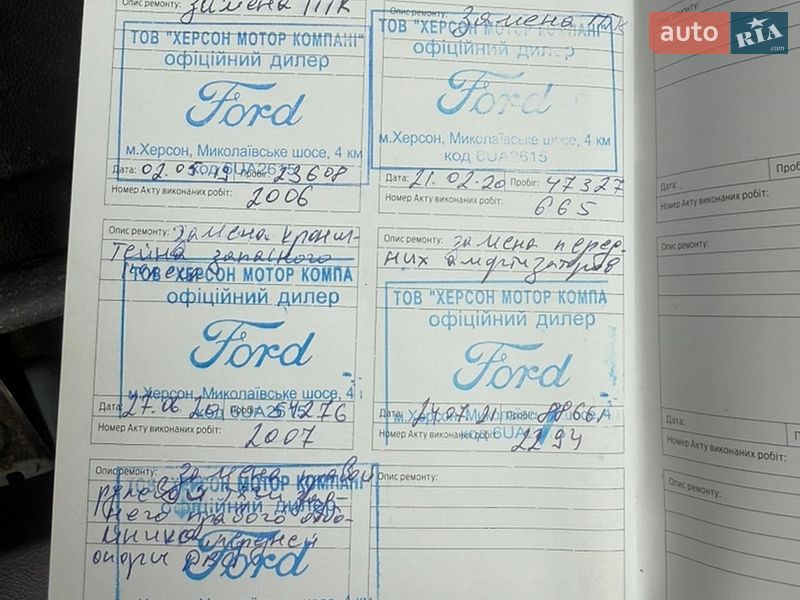 Опис ремонту: замена ППК
ТОВ "ХЕРСОН МОТОР КОМПАНІ"
офіційний дилер
Ford
м.Херсон, Миколаївське шосе, 4 км
код 6UA2615
Дата: 02.05.19 Пробіг: 23608
Номер Акту виконаних робіт:
2006
Опис ремонту: Замена ППК
ТОВ "ХЕРСОН МОТОР КОМПАНІ
офіційний дилер
Ford
м.Херсон, Миколаївське шосе, 4 км
код 6UA2615
Дата: 21.02.20 Пробіг: 47327
Номер Акту виконаних робіт:
665
Опис ремонту: Замена кронш-
тейна запасного
ТОВ "ХЕРСОН МОТОР КОМПА
офіційний дилер
Ford
м.Херсон, Миколаївське шосе, 4
код 6UA2615
Дата: 27.06.20 Пробіг: 54276
Номер Акту виконаних робіт:
2007
Опис ремонту: замена перед-
них амортизаторов
ТОВ "ХЕРСОН МОТОР КОМПА
офіційний дилер
Ford
м.Херсон, Миколаївське шосе, 4
код 6UA
Дата: 07.21 Пробіг:
Номер Акту виконаних робіт:
2294
Опис ремонту: Замена правой
рулевой
ТОВ "ХЕРСОН МОТОР КОМПАНІ
офіційний дилер
него правого
передней
опоры
Ford
Опис ремонту:
Дата:
Номер Акту виконаних робіт:
Проб
Опис ремонту:
Дата:
Номер Акту виконаних робіт:
Про
Опис ремонту:
auto RIA .com